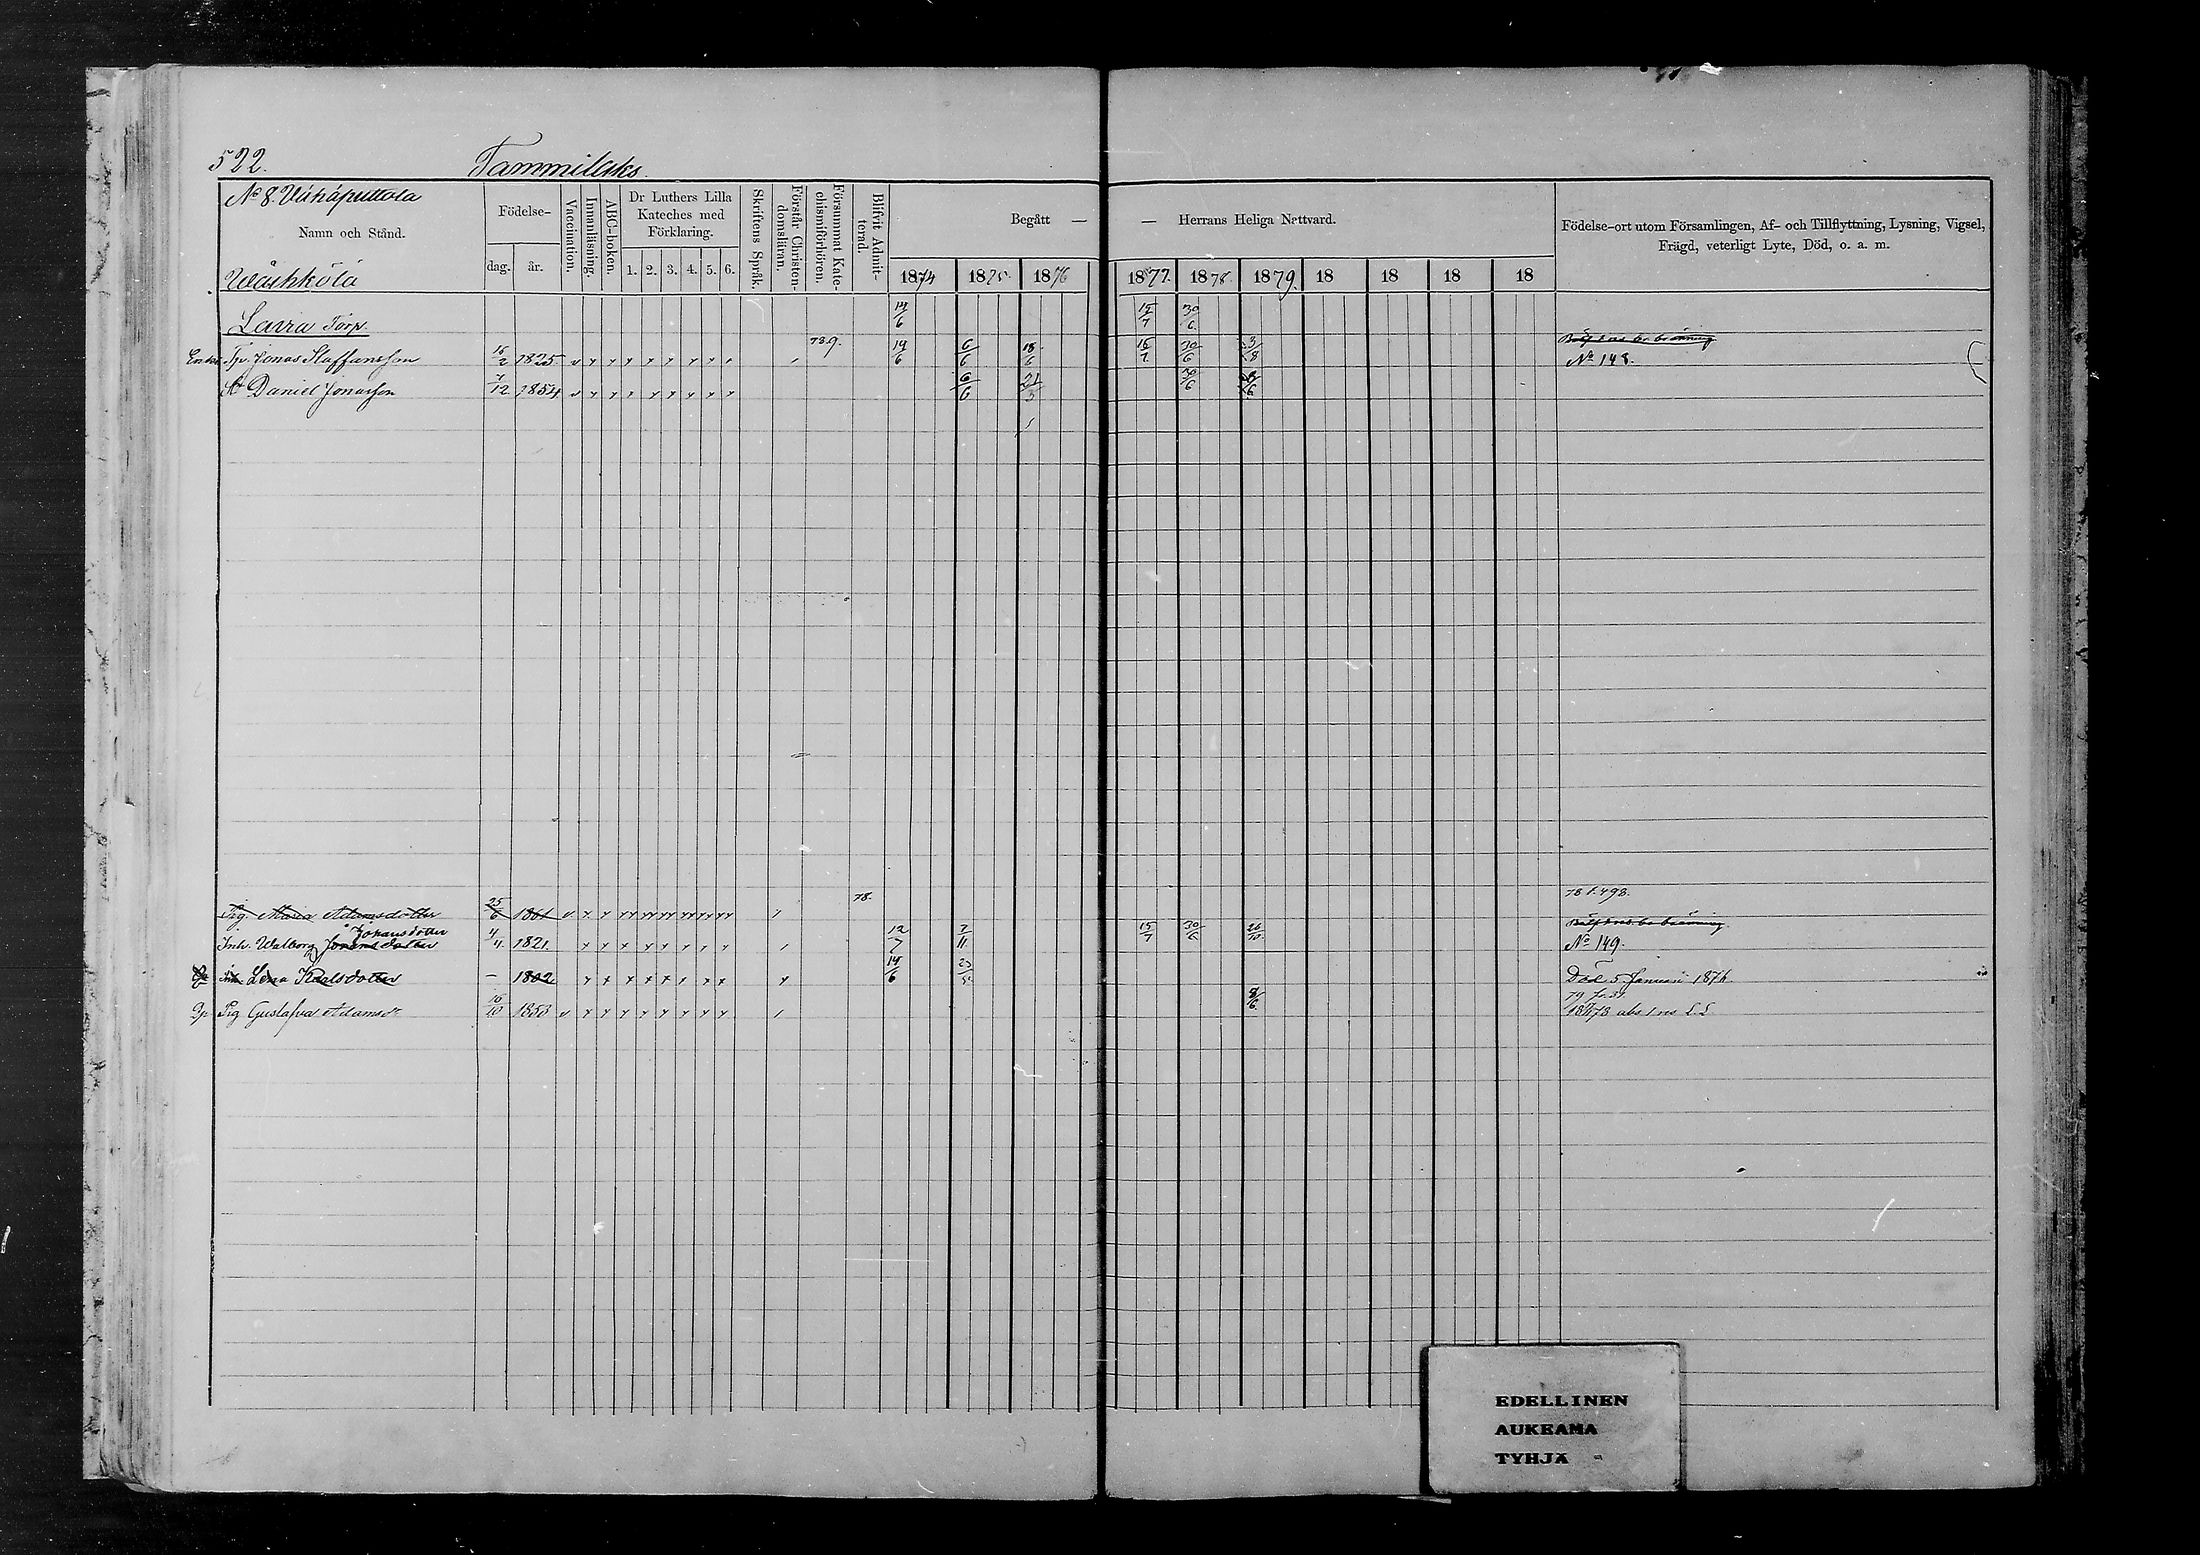 522. Tammilaks.
No 8. Vähäputtola
Namn och Stånd.
Födelse-
dag. år.
Vaccination.
Innanläsning.
ABC-boken.
Dr Luthers Lilla
Kateches med
Förklaring.
1. 2. 3. 4. 5. 6.
Skriftens Språk.
Förstår Christen-
domsläran.
Försummat Kate-
chismiförhören.
Blifvit Admit-
terad.
Begått — — Herrans Heliga Nattvard.
1874 1875 1876 1877. 1878. 1879. 18 18 18 18
Födelse-ort utom Församlingen, Af- och Tillflyttning, Lysning, Vigsel,
Frägd, veterligt Lyte, Död, o. a. m.
Lavra Torp. 14/6 15/7 30/6
Tp. Jonas Staffansson 16/2 1825 19/6 6/6 18/6 16/7 30/6 3/8 No 148.
Daniel Jonasson /12 1854 6/6 21/3 30/6
78.
78 f. 493.
Pig. Maria Adamsdotter 25/6 1861
Johansdotter
Inh. Walborg 4/4 1821. 12/7 7/11 15/7 30/6 26/10 No 149.
Lena Karlsdotter – 1802 14/6 23/5 Död 5 Januari 1876
Pig Gustafva Adamsdr 10/10 1853 8/6
EDELLINEN
AUKEAMA
TYHJÄ